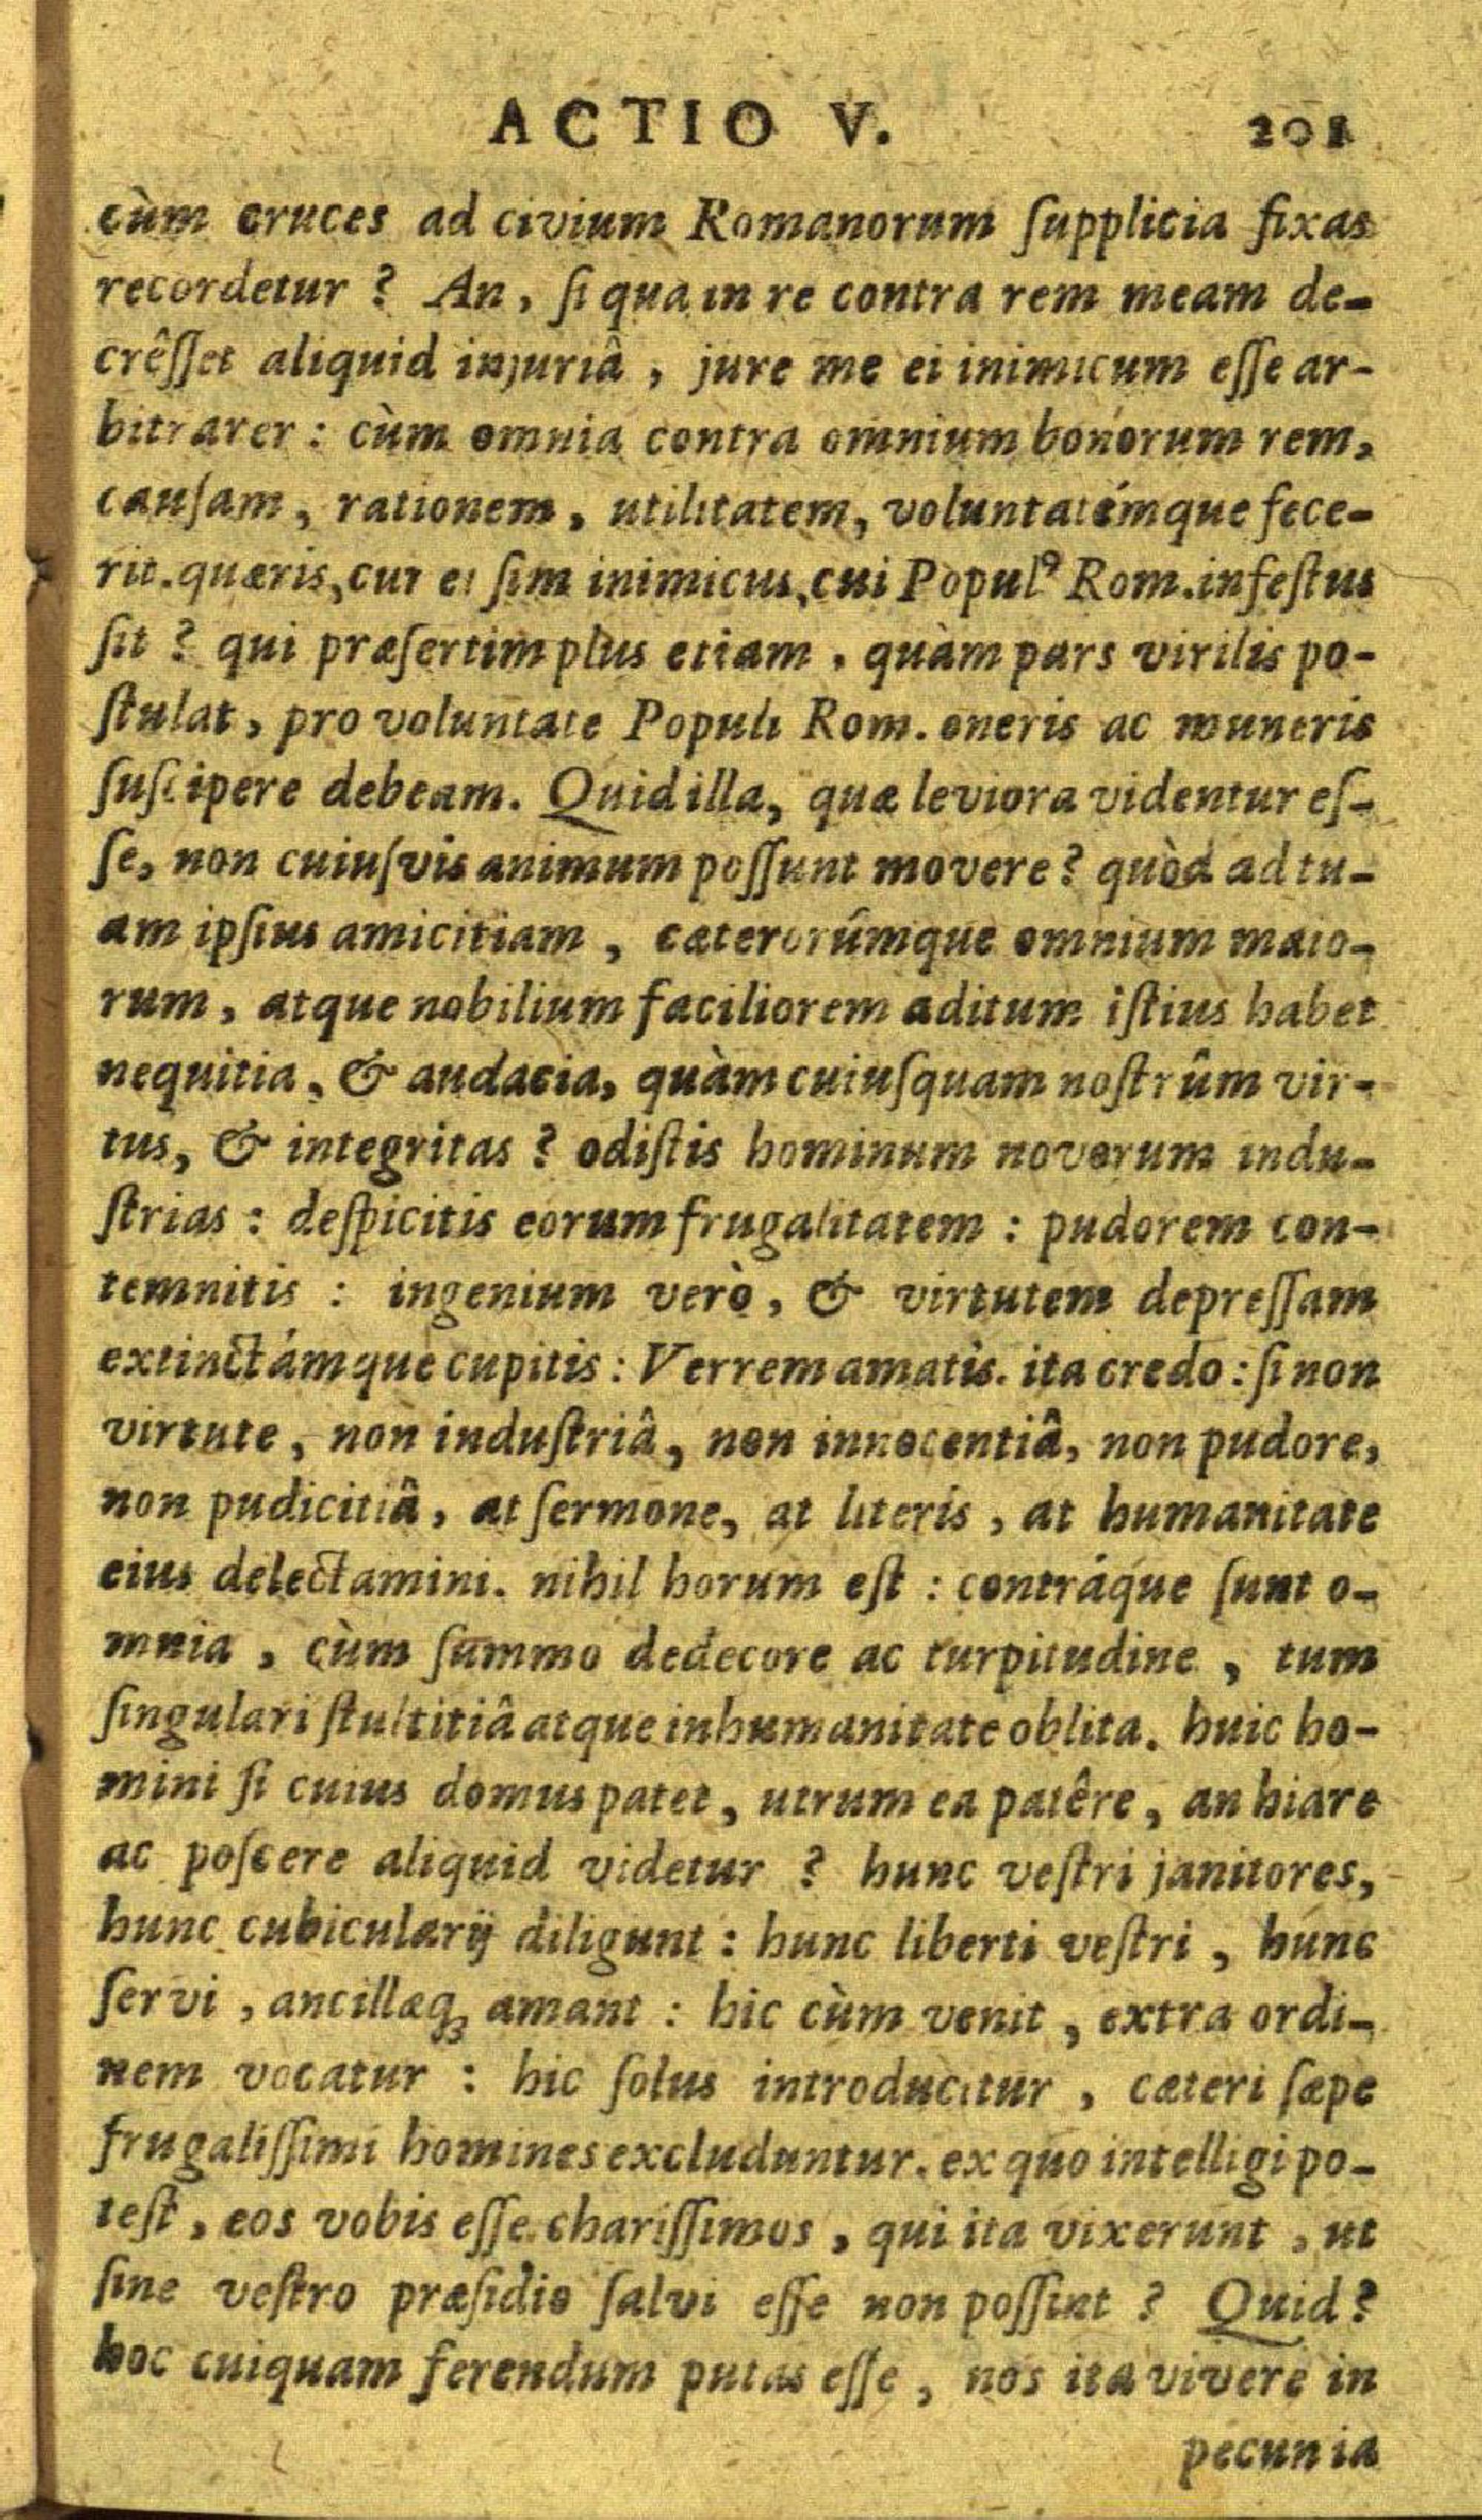 ACTIO V. 201
cùm cruces ad civium Romanorum ſupplicia fixas
recordetur ? An, ſi qua in re contra rem meam de-
crêſſet aliquid injuriâ, jure me ei inimicum eſſe ar-
bitrarer : cùm omnia contra omnium bonorum rem,
cauſam, rationem, utilitatem, voluntatémque fece-
rit. quæris, cur ei ſim inimicus, cui Populꝰ Rom. infeſtus
ſit ? qui præſertim plus etiam, quàm pars virilis po-
ſtulat, pro voluntate Populi Rom. oneris ac muneris
ſuſcipere debeam. Quid illa, quæ leviora videntur eſ-
ſe, non cuiuſvis animum poſſunt movere? quòd ad tu-
am ipſius amicitiam, cæterorúmque omnium maio-
rum, atque nobilium faciliorem aditum iſtius habet
nequitia, & audacia, quàm cuiuſquam noſtrûm vir-
tus, & integritas ? odiſtis hominum novorum indu-
ſtrias : deſpicitis eorum frugalitatem : pudorem con-
temnitis : ingenium verò, & virtutem depreſſam
extinctámque cupitis : Verrem amatis. ita credo : ſi non
virtute, non induſtriâ, non innocentiâ, non pudore,
non pudicitiâ, at ſermone, at literis, at humanitate
eius delectamini. nihil horum eſt : contráque ſunt o-
mnia, cùm ſummo dedecore ac turpitudine, tum
ſingulari ſtultitiâ atque inhumanitate oblita. huic ho-
mini ſi cuius domus patet, utrum ea patêre, an hiare
ac poſcere aliquid videtur ? hunc veſtri janitores,
hunc cubicularij diligunt : hunc liberti veſtri, hunc
ſervi, ancillæq́; amant : hic cùm venit, extra ordi-
nem vocatur : hic ſolus introducitur, cæteri ſæpe
frugaliſſimi homines excluduntur. ex quo intelligi po-
teſt, eos vobis eſſe chariſſimos, qui ita vixerunt, ut
ſine veſtro præſidio ſalvi eſſe non poſſint ? Quid ?
hoc cuiquam ferendum putas eſſe, nos ita vivere in
pecunia